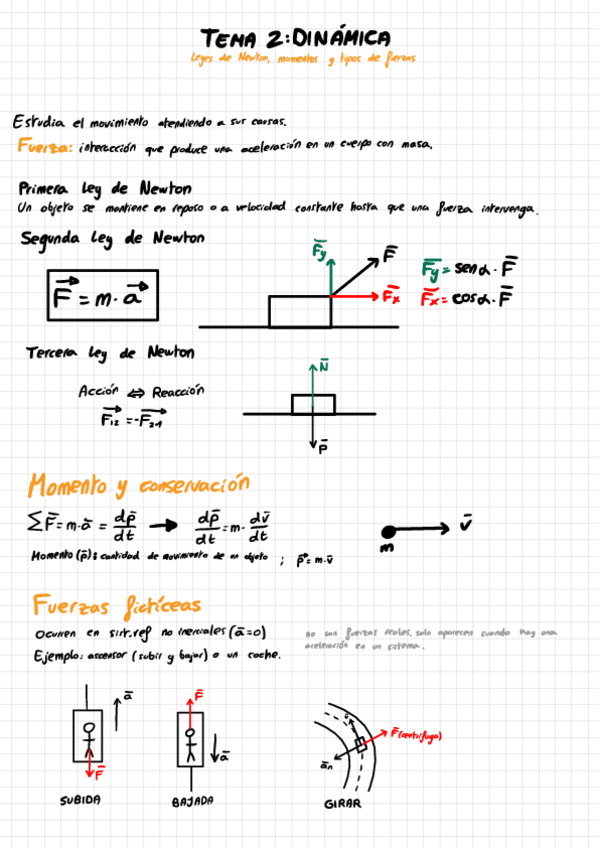 TEMA 2: DINÁMICA
Leyes de Newton, momentos y tipos de fuerzas
Estudia el movimiento atendiendo a sus causas.
Fuerza: interacción que produce una aceleración en un cuerpo con masa.
Primera Ley de Newton
Un objeto se mantiene en reposo o a velocidad constante hasta que una fuerza intervenga.
Segunda Ley de Newton
F⃗ = m · a⃗
F̄y
F̄
F̄x
F̄y = senα · F̄
F̄x = cosα · F̄
Tercera Ley de Newton
Acción ⇔ Reacción
F₁₂ = -F₂₁
N̄
P̄
Momento y conservación
ΣF̄ = m·ā = dp̄/dt → dp̄/dt = m · dv̄/dt
Momento (p̄): cantidad de movimiento de un objeto ; p̄ = m·v̄
m
v̄
Fuerzas ficticeas
Ocurren en sist.ref no inerciales (ā=0)
Ejemplo: ascensor (subir y bajar) o un coche.
no son fuerzas reales, solo aparecen cuando hay una
aceleración en un sistema.
ā
F̄
SUBIDA
F̄
ā
BAJADA
F̄(centrífuga)
ān
GIRAR